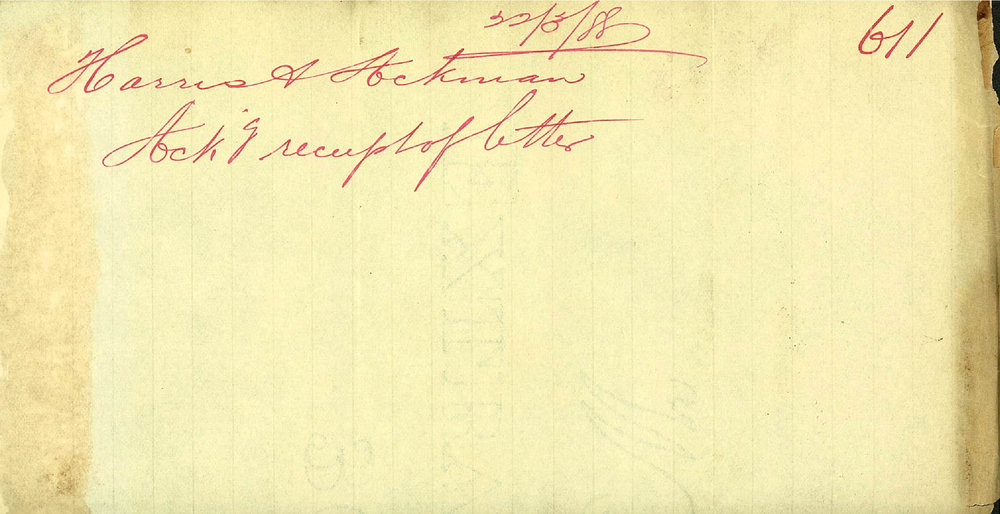 22/3/88
611
Harris A Ackman
Ack'g receipt of letter